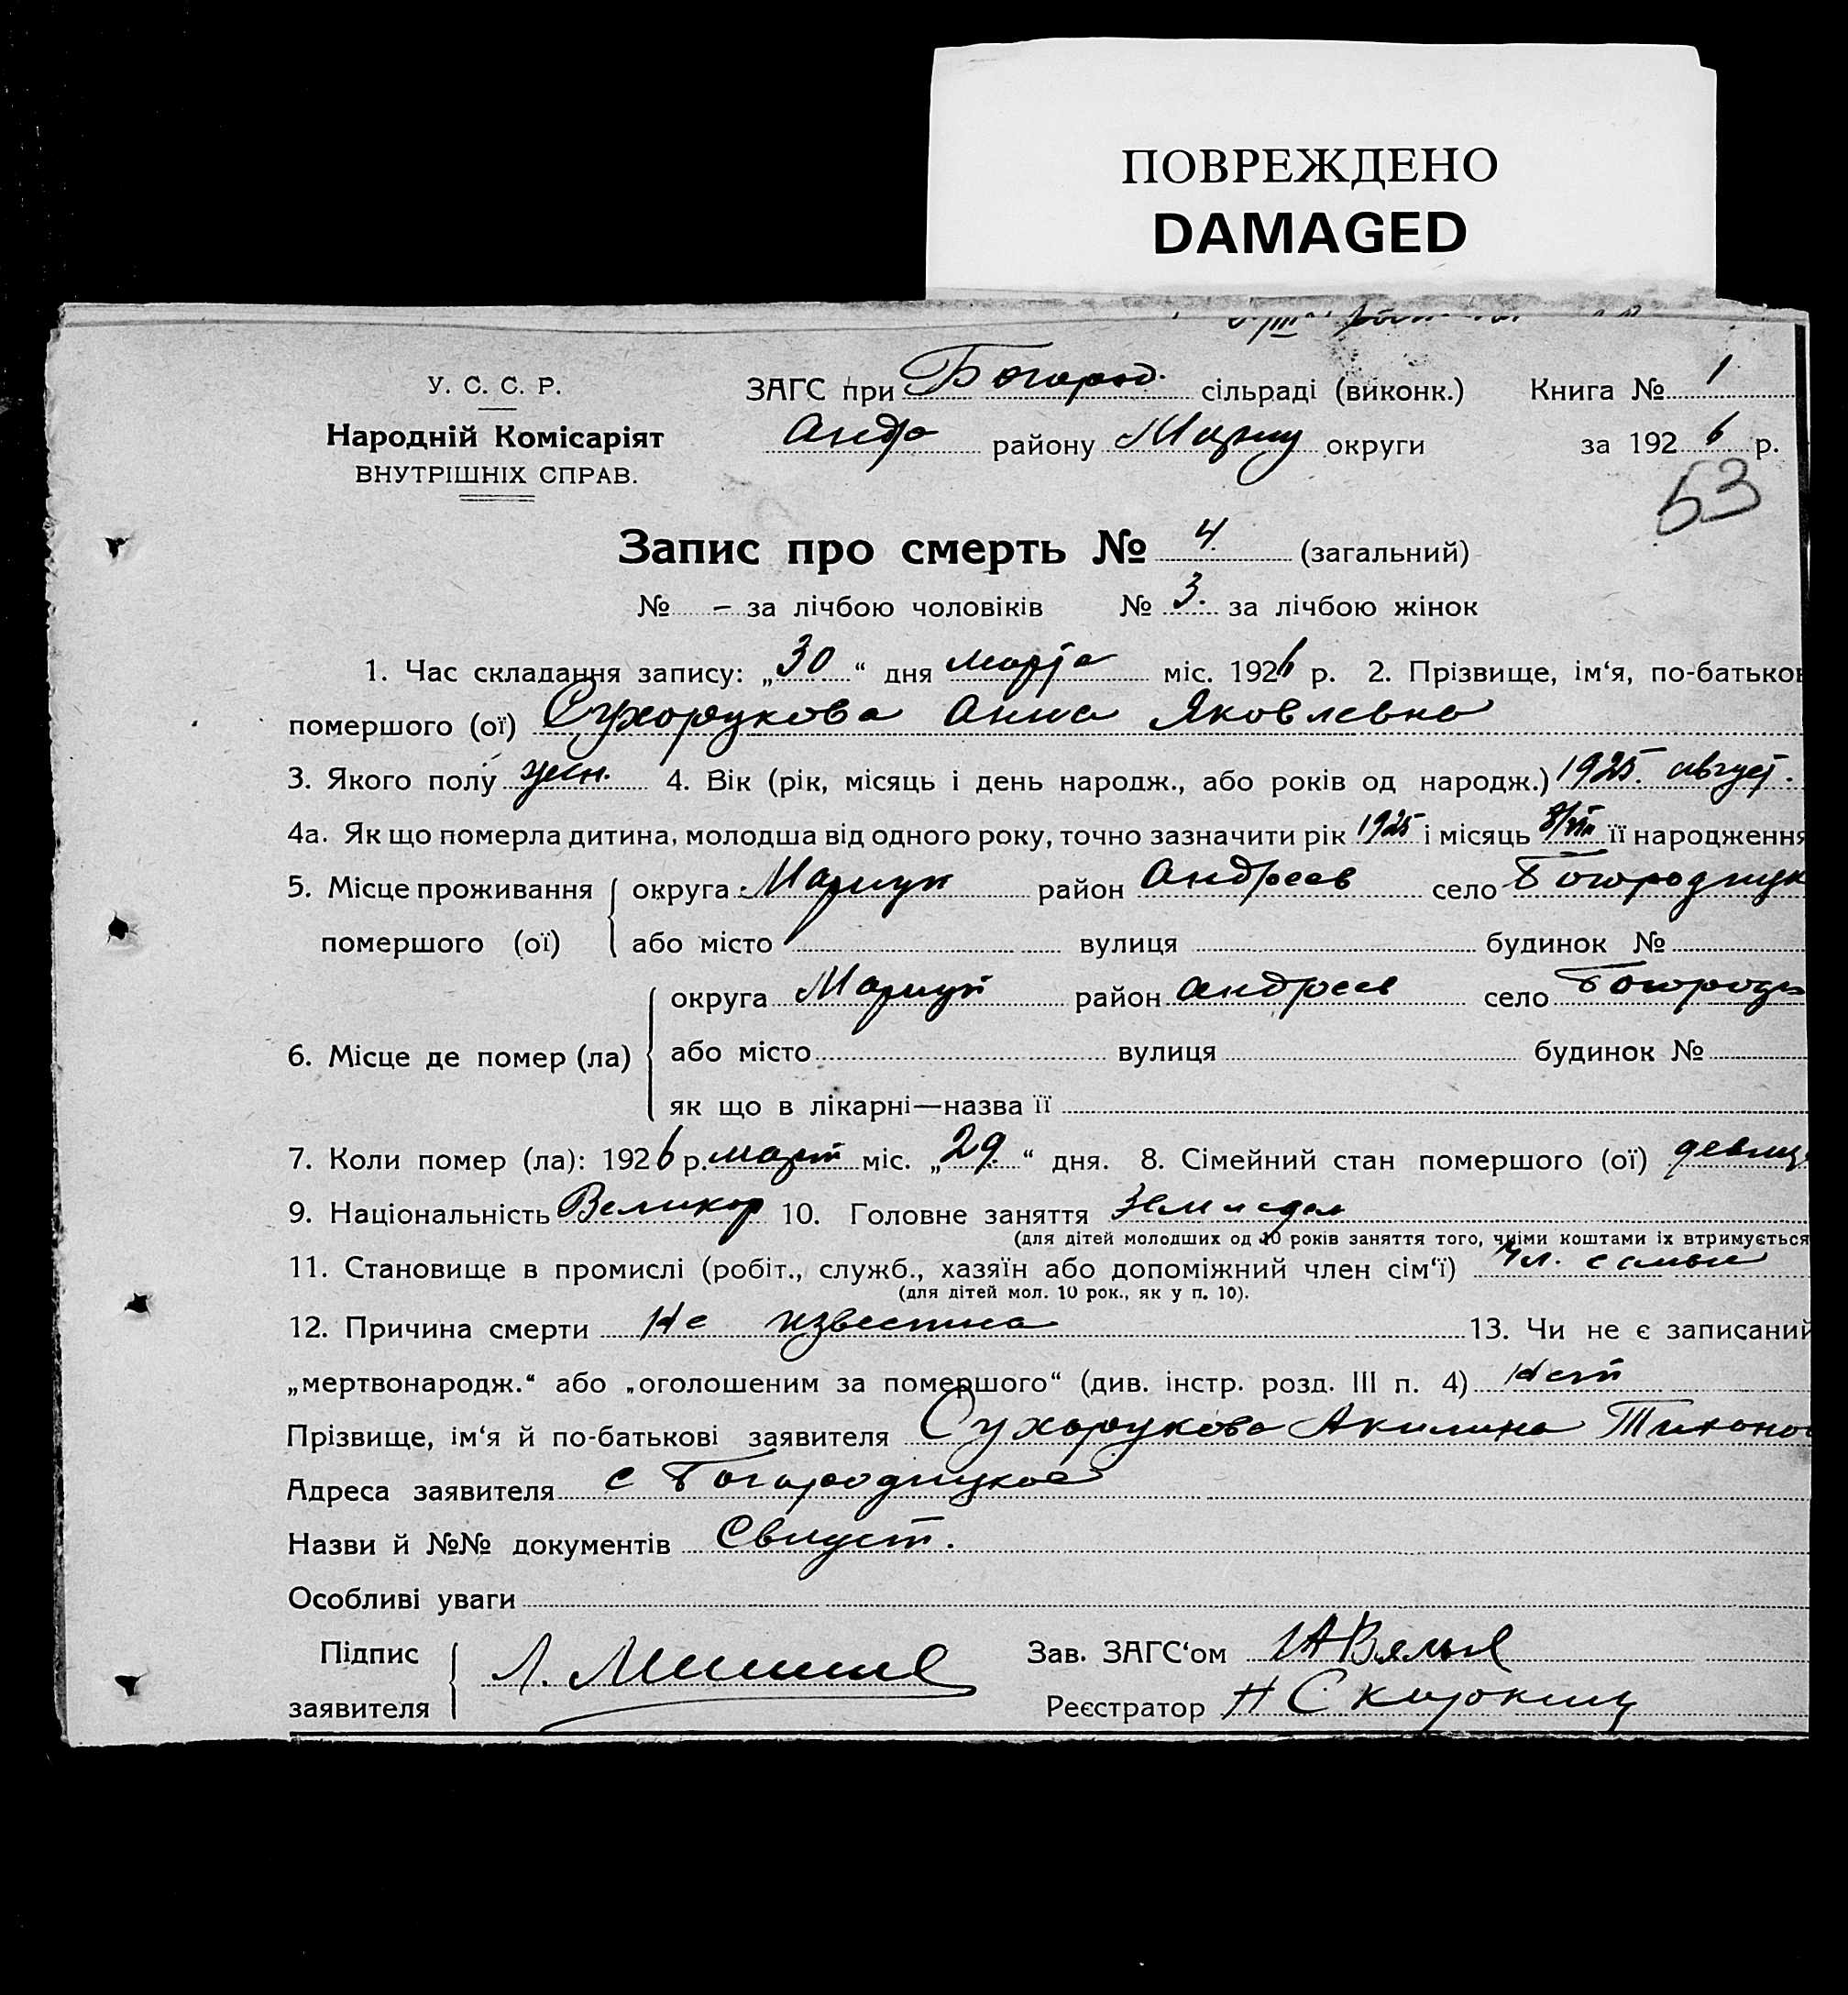 ПОВРЕЖДЕНО
DAMAGED
У. С. С. Р.
Народній Комісаріят
ВНУТРІШНІХ СПРАВ.
ЗАГС при Богород. сільраді (виконк.) Книга № 1
Андр району Мариу округи за 1926 р.
53
Запис про смерть № 4. (загальний)
№ – за лічбою чоловіків № 3. за лічбою жінок
1. Час складання запису: „30“ дня марта міс. 1926 р. 2. Прізвище, ім‘я, по-батьков
помершого (ої) Сухорукова Анна Яковлевна
3. Якого полу жен. 4. Вік (рік, місяць і день народж., або років од народж.) 1925. август.
4а. Як що померла дитина, молодша від одного року, точно зазначити рік 1925 і місяць 8/VIII її народження
5. Місце проживання округа Мариуп район Андреев село Богородицк
помершого (ої) або місто вулиця будинок №
округа Мариуп район Андреев село Богородиц
6. Місце де помер (ла) або місто вулиця будинок №
як що в лікарні—назва її
7. Коли помер (ла): 1926 р. март міс. „29.“ дня. 8. Сімейний стан помершого (ої) девица
9. Національність Великор 10. Головне заняття Земледел
(для дітей молодших од 10 років заняття того, чиїми коштами їх втримується
11. Становище в промислі (робіт., служб., хазяїн або допоміжний член сім‘ї) Чл. семьи
(для дітей мол. 10 рок., як у п. 10).
12. Причина смерти Не известна 13. Чи не є записаний
„мертвонародж.“ або „оголошеним за помершого“ (див. інстр. розд. III п. 4) Нет
Прізвище, ім‘я й по-батькові заявителя Сухорукова Акилина Тихонов
Адреса заявителя с Богородицкое
Назви й №№ документів
Особливі уваги
Підпис Зав. ЗАГС‘ом
заявителя Реєстратор